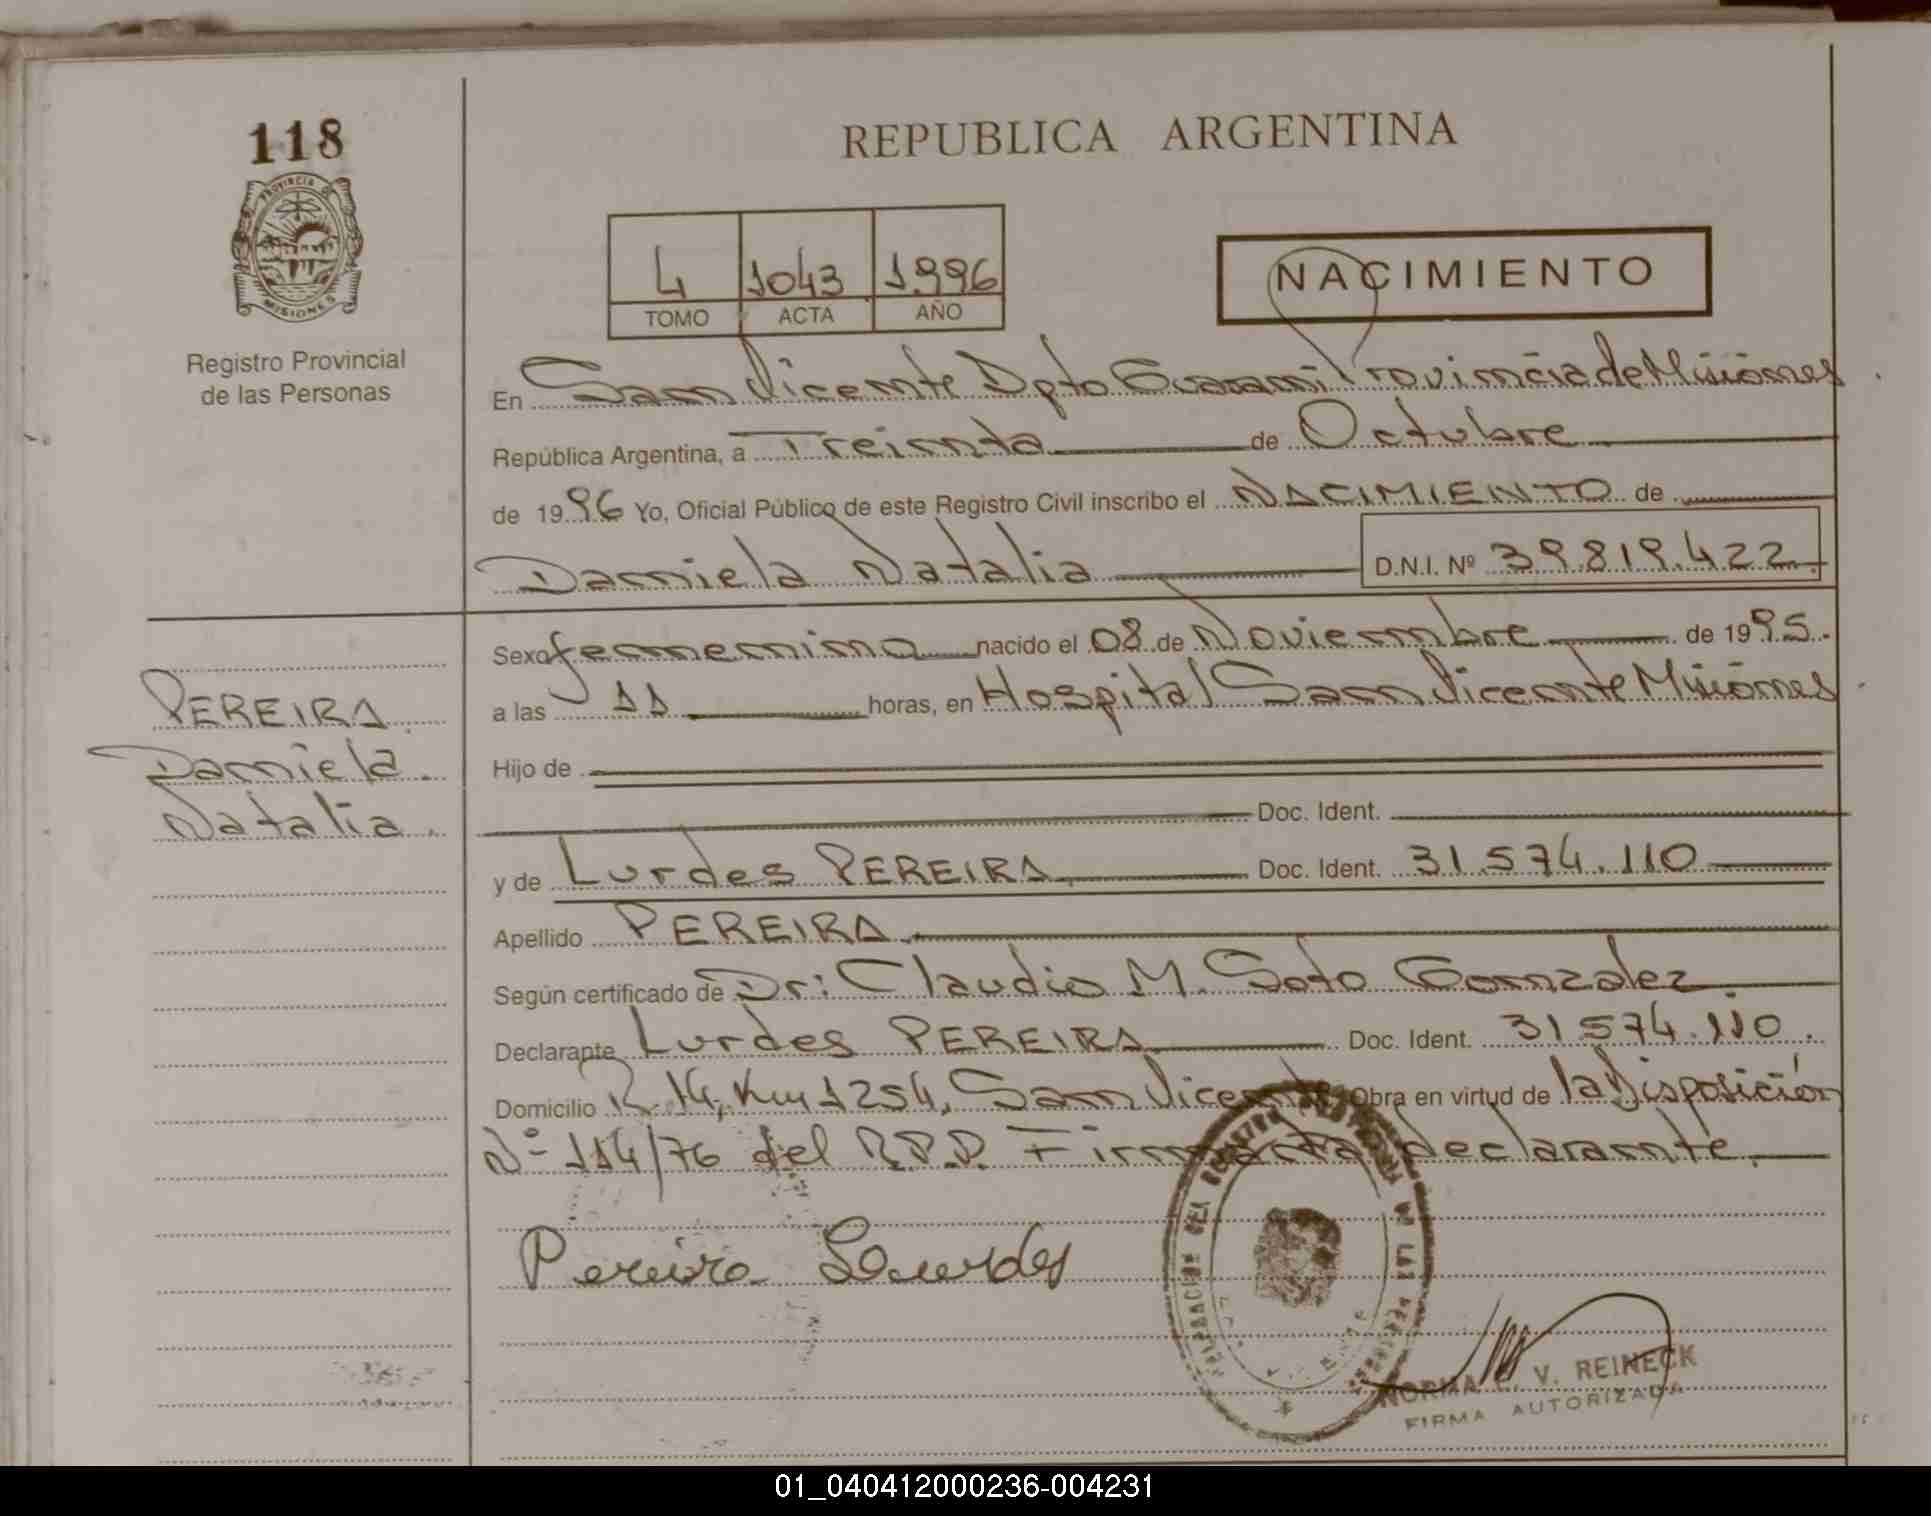 118
REPUBLICA ARGENTINA
PROVINCIA DE
MISIONES
Registro Provincial
de las Personas
4 1043 1.996
TOMO ACTA AÑO
NACIMIENTO
En San Vicente Dpto Guarani Provincia de Misiones
República Argentina, a Treinta de Octubre
de 1996 Yo, Oficial Público de este Registro Civil inscribo el NACIMIENTO de
Daniela Natalia D.N.I. Nº 39.819.422.
Sexo femenino nacido el 08 de Noviembre de 1995.
a las 11 horas, en Hospital San Vicente Misiones
PEREIRA
Daniela
Natalia
Hijo de
Doc. Ident.
y de Lurdes PEREIRA Doc. Ident. 31.574.110
Apellido PEREIRA
Según certificado de Dr: Claudio M. Soto Gonzalez
Declarante Lurdes PEREIRA Doc. Ident. 31.574.110.
Domicilio R. 14, Km 1254, San Vicente Obra en virtud de la Disposición
Nº 114/76 del R.P.P. Firma la declarante.
Pereira Lourdes
NORMA V. REINECK
FIRMA AUTORIZADA
01_040412000236-004231